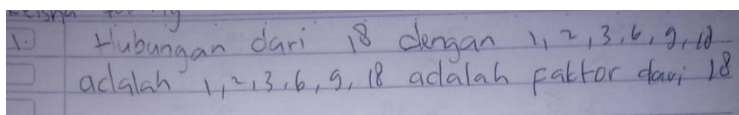 1. Hubungan dari 18 dengan 1, 2, 3, 6, 9, 18
adalah 1, 2, 3, 6, 9, 18 adalah faktor dari 18